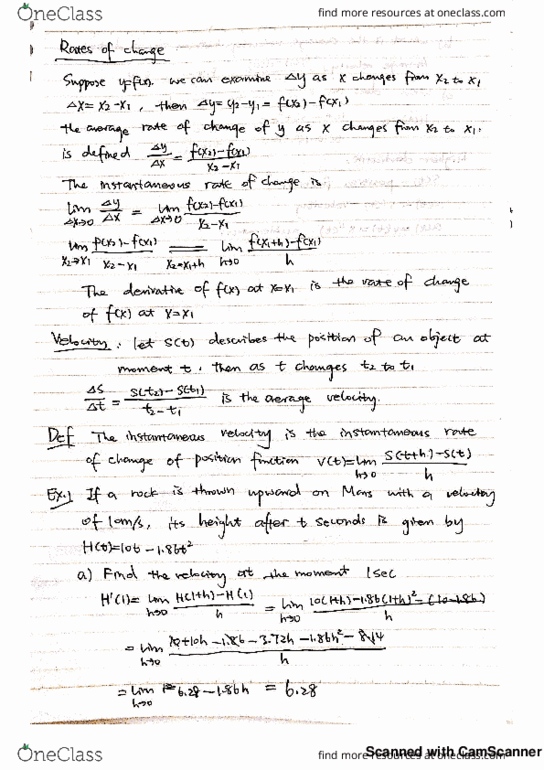 OneClass
find more resources at oneclass.com
Rates of change
Suppose y=f(x). we can examine Δy as x changes from x2 to x1
Δx= x2-x1, then Δy= y2-y1 = f(x2)-f(x1)
the average rate of change of y as x changes from x2 to x1.
is defined Δy/Δx = f(x2)-f(x1)/x2-x1
The instantaneous rate of change is
lim Δx→0 Δy/Δx = lim Δx→0 f(x2)-f(x1)/x2-x1
lim x2→x1 f(x2)-f(x1)/x2-x1 = x2=x1+h lim h→0 f(x1+h)-f(x1)/h
The derivative of f(x) at x=x1 is the rate of change
of f(x) at x=x1
Velocity. let S(t) describes the position of an object at
moment t, then as t changes t2 to t1
ΔS/Δt = S(t2)-S(t1)/t2-t1 is the average velocity.
Def The instantaneous velocity is the instantaneous rate
of change of position function V(t)=lim h→0 S(t+h)-S(t)/h
Ex.1 If a rock is thrown upward on Mars with a velocity
of 10m/s, its height after t seconds is given by
H(t)=10t-1.86t²
a) Find the velocity at the moment 1sec
H'(1)= lim h→0 H(1+h)-H(1)/h = lim h→0 10(1+h)-1.86(1+h)²-(10-1.86)/h
= lim h→0 10+10h-1.86-3.72h-1.86h²-8.14/h
= lim h→0 6.28-1.86h = 6.28
Scanned with CamScanner
OneClass
find more resources at oneclass.com